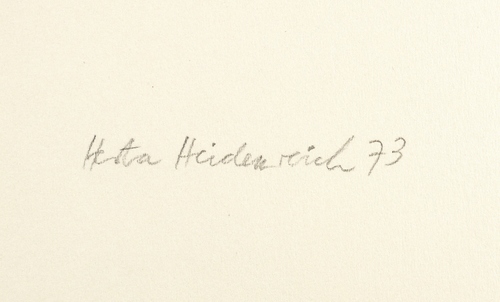 Herta Heidenreich 73